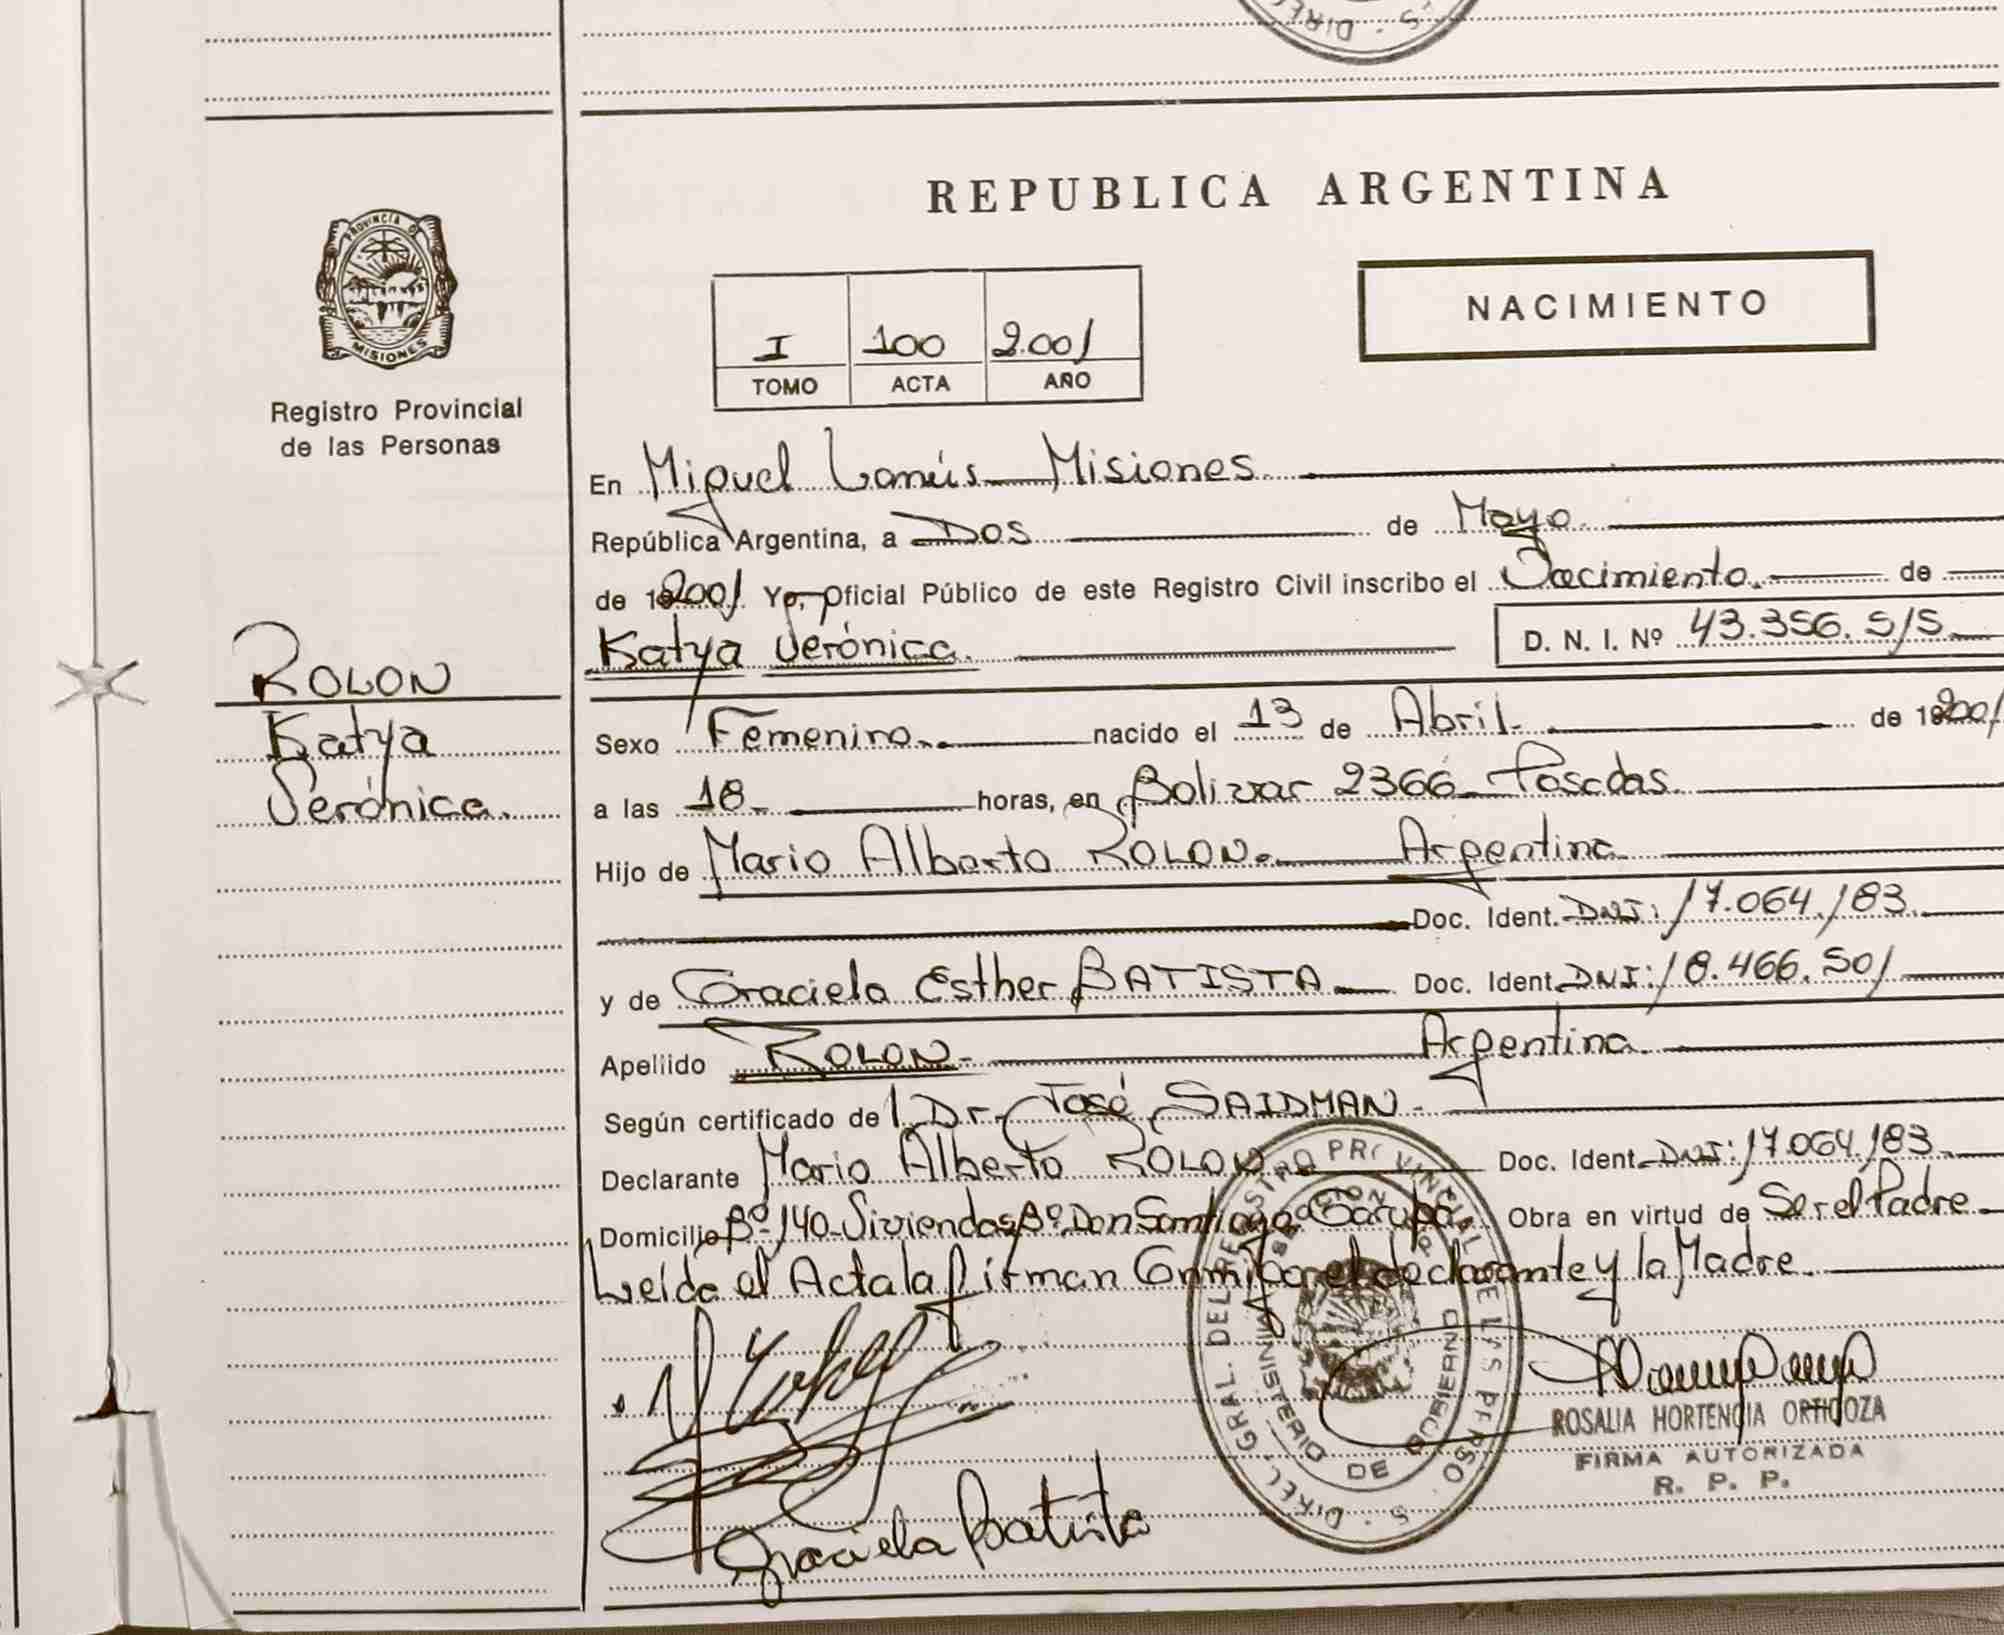 REPUBLICA ARGENTINA
PROVINCIA DE
MISIONES
Registro Provincial
de las Personas
I 100 2.001
TOMO ACTA AÑO
NACIMIENTO
En Miguel Lanús Misiones
República Argentina, a Dos de Mayo
de 12001 Yo, Oficial Público de este Registro Civil inscribo el Nacimiento de
Katya Verónica. D. N. I. Nº 43.356.515
ROLON
Katya
Verónica.
Sexo Femenino. nacido el 13 de Abril de 12001
a las 18 horas, en Bolivar 2366 Posadas.
Hijo de Mario Alberto ROLON. Argentina
Doc. Ident. DNI: 17.064.183.
y de Graciela Esther BATISTA Doc. Ident. DNI: 18.466.501
Apellido ROLON Argentina
Según certificado del Dr. José SAIDMAN
Declarante Mario Alberto ROLON Doc. Ident. DNI: 17.064.183
Domicilio Bº 140 Viviendas Bº Don Santiago Garupá Obra en virtud de Ser el Padre
Leída el Acta la firman Conmigo el declarante y la Madre.
DIREC. GRAL. DEL REGISTRO PROVINCIAL DE LAS PERSO S
MINISTERIO DE GOBIERNO
ROSALIA HORTENCIA ORTIGOZA
FIRMA AUTORIZADA
R. P. P.
Graciela Batista